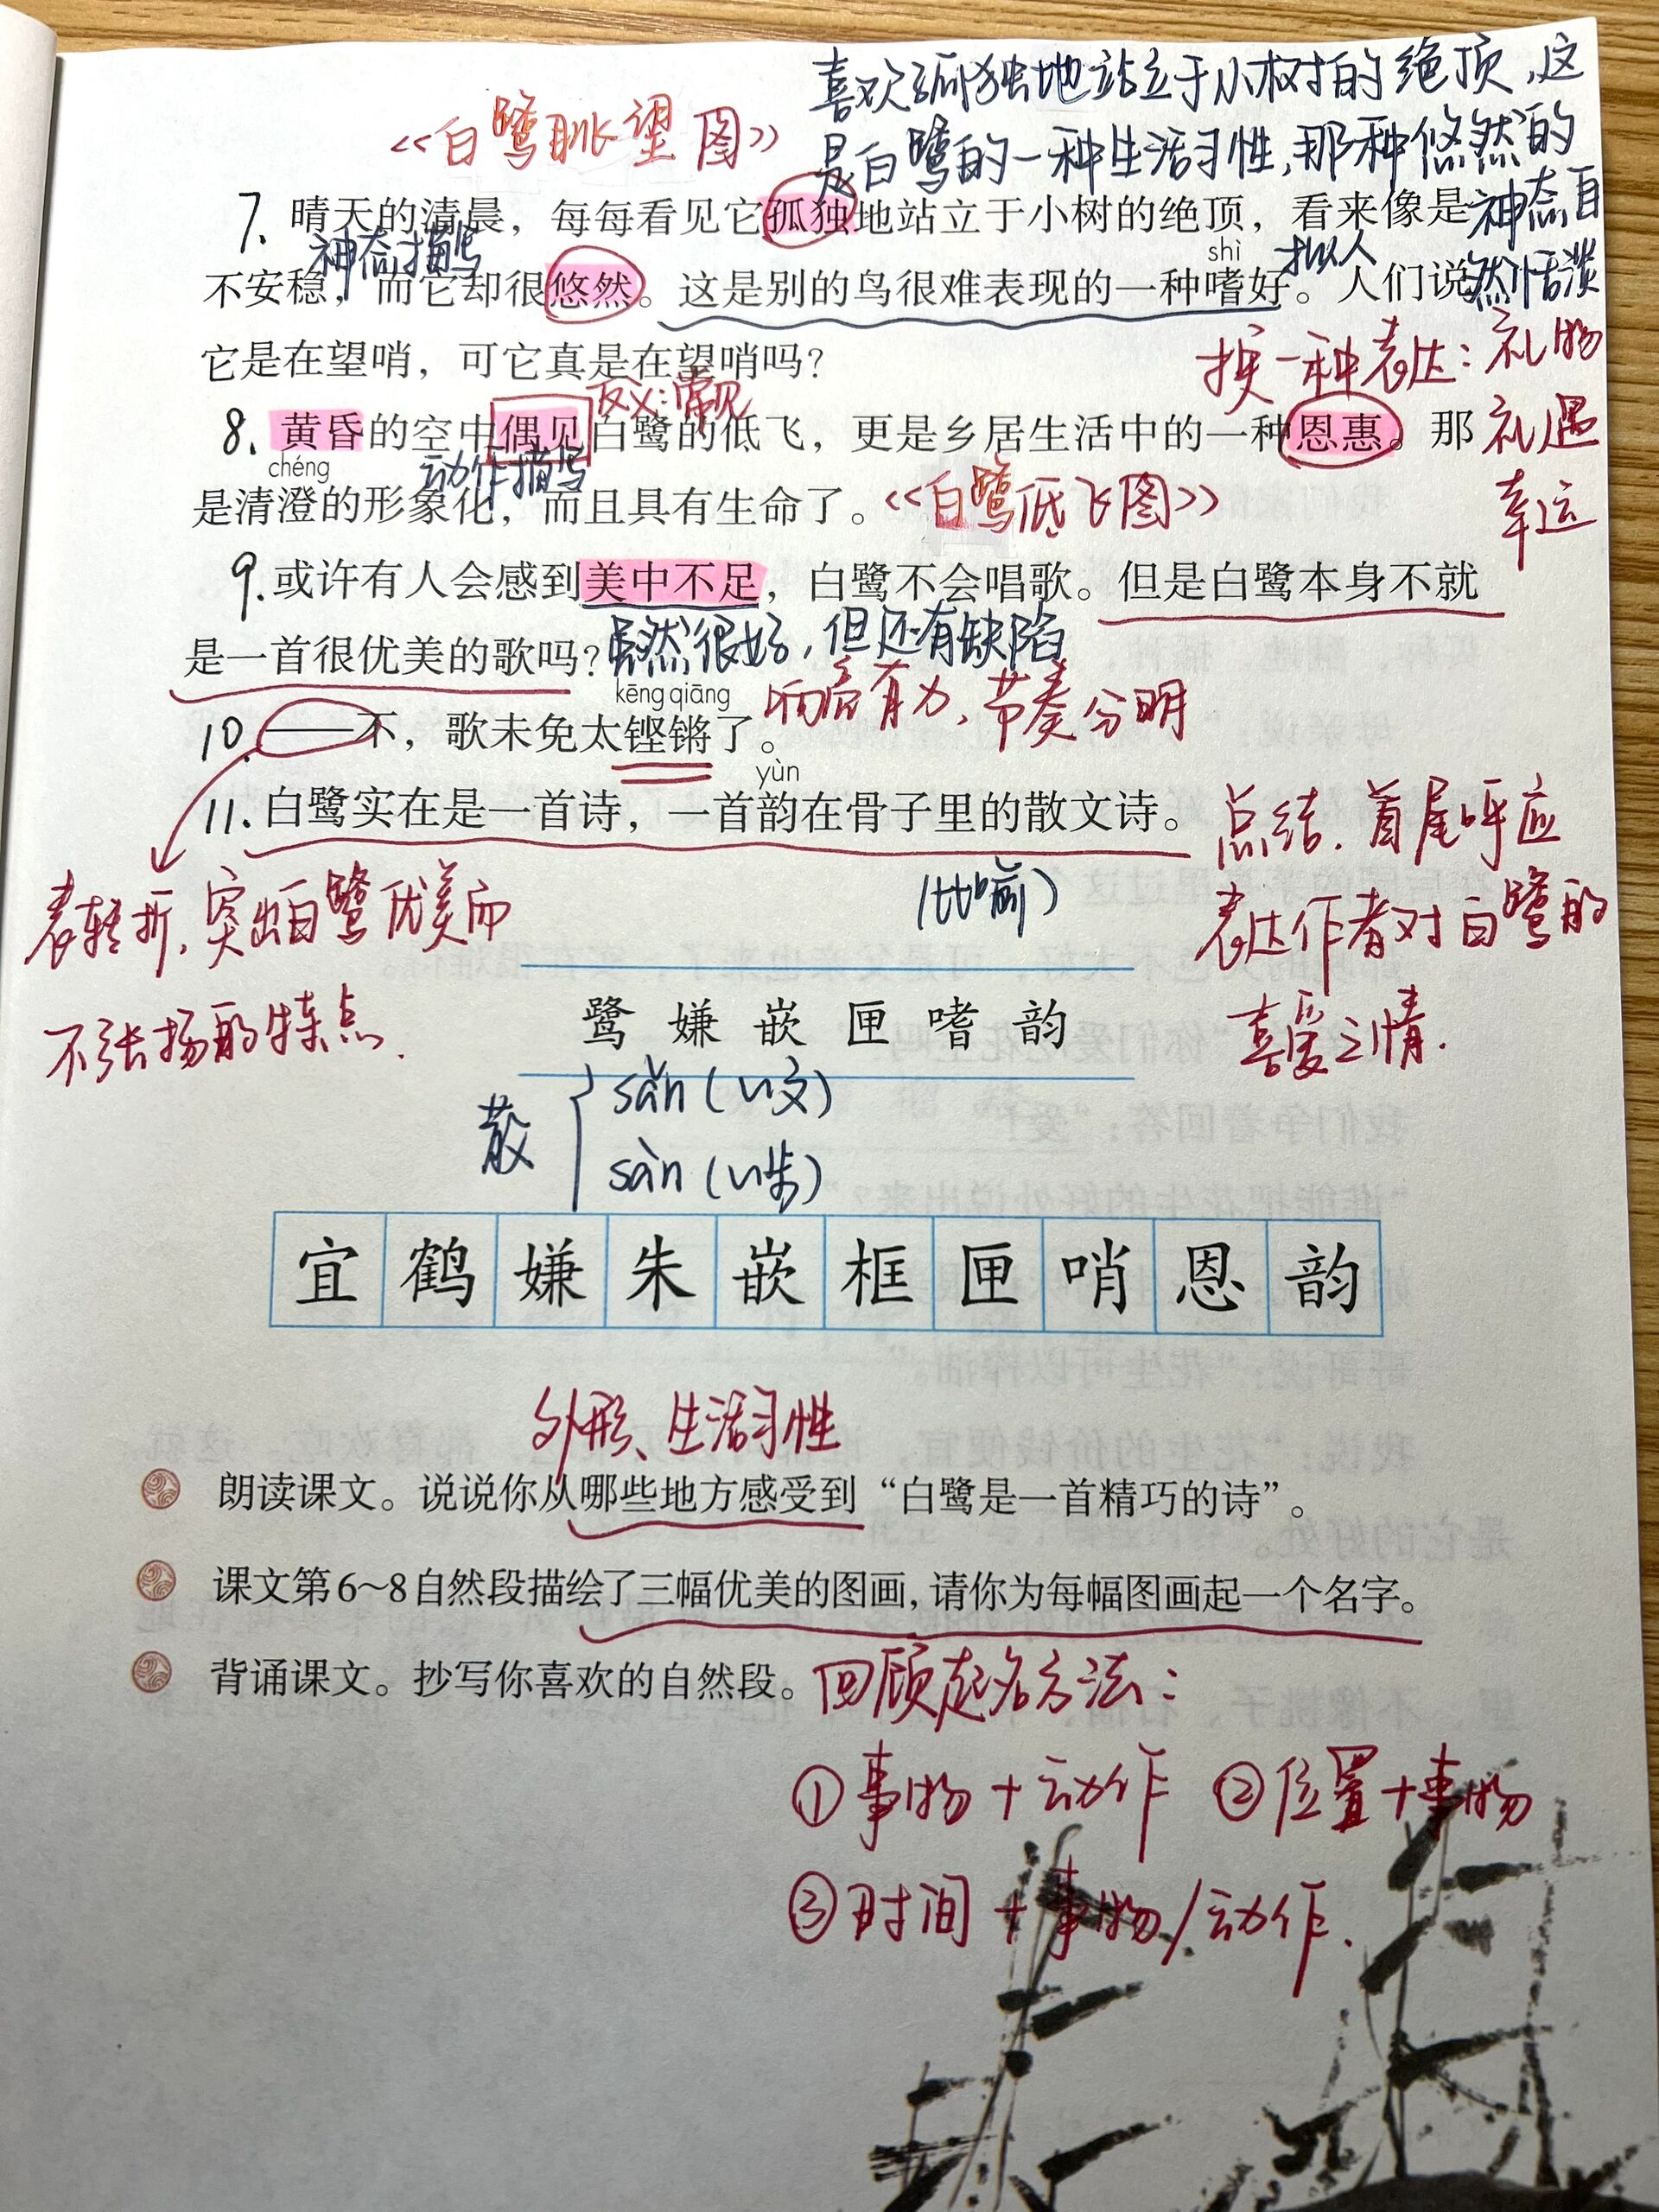 喜欢孤独地站立于小树的绝顶,这
《白鹭眺望图》
是白鹭的一种生活习性,那种悠然的
7. 晴天的清晨，每每看见它孤独地站立于小树的绝顶，看来像是
神态自
神态描写
shì
拟人
不安稳，而它却很悠然。这是别的鸟很难表现的一种嗜好。人们说
然恬淡
它是在望哨，可它真是在望哨吗？
换一种表达：礼物
反义：常见
8. 黄昏的空中偶见白鹭的低飞，更是乡居生活中的一种恩惠。那
礼遇
chéng
动作描写
是清澄的形象化，而且具有生命了。
《白鹭低飞图》
幸运
9. 或许有人会感到美中不足，白鹭不会唱歌。但是白鹭本身不就
是一首很优美的歌吗？
虽然很好,但还有缺陷
kēng qiāng
响亮有力、节奏分明
10. ——不，歌未免太铿锵了。
yùn
11. 白鹭实在是一首诗，一首韵在骨子里的散文诗。
点结.首尾呼应
表达作者对白鹭的
喜爱之情.
表转折,突出白鹭优美而
不张扬的特点.
(比喻)
鹭 嫌 嵌 匣 嗜 韵
散
sǎn(~文)
sàn(~步)
宜 鹤 嫌 朱 嵌 框 匣 哨 恩 韵
外形、生活习性
朗读课文。说说你从哪些地方感受到“白鹭是一首精巧的诗”。
课文第6~8自然段描绘了三幅优美的图画，请你为每幅图画起一个名字。
背诵课文。抄写你喜欢的自然段。
回顾起名方法：
①事物+动作 ②位置+事物
③时间+事物/动作.